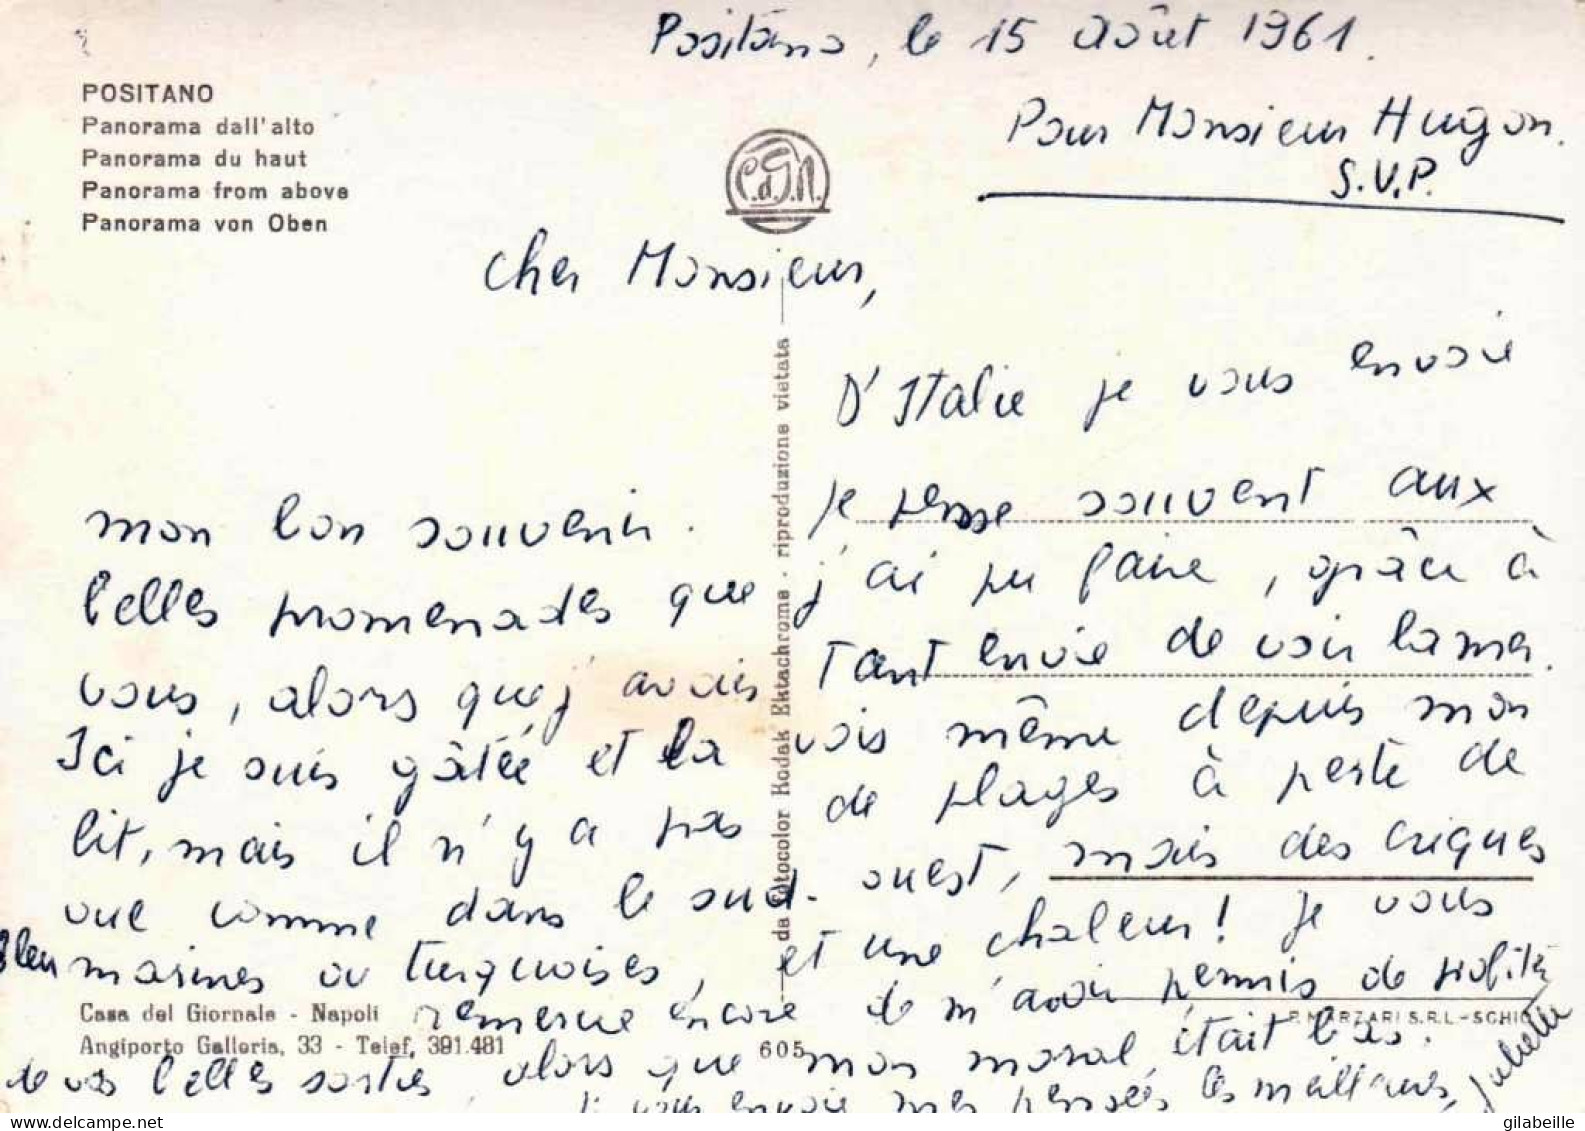 Positano, le 15 août 1961.
POSITANO
Panorama dall'alto
Panorama du haut
Panorama from above
Panorama von Oben
C.d.G.N.
Pour Monsieur Hugon.
S.V.P.
Cher Monsieur,
D'Italie je vous envoie
mon bon souvenir. Je pense souvent aux
belles promenades que j'ai pu faire, grâce à
vous, alors que j'avais tant envie de voir la mer.
Ici je suis gâtée et la vois même depuis mon
lit, mais il n'y a pas de plages à perte de
vue comme dans le sud-ouest, mais des criques
bleu marines ou turquoises, et une chaleur! Je vous
remercie encore de m'avoir permis de profiter
de vos belles sorties, alors que mon moral était bas.
Je vous envoie mes pensées les meilleures, Juliette
da Fotocolor Kodak Ektachrome - riproduzione vietata
Casa del Giornale - Napoli
Angiporto Galleria, 33 - Telef, 391.481
605
P. MARZARI S.R.L.-SCHIO
gilabeille